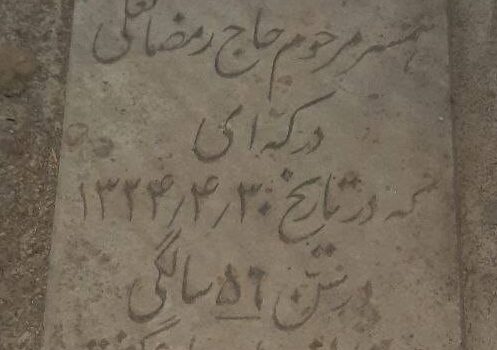 همسر مرحوم حاج رمضانعلی
درکه ای
که در تاریخ ۱۳۲۴٫۴٫۳۰
در سن ۵۶ سالگی